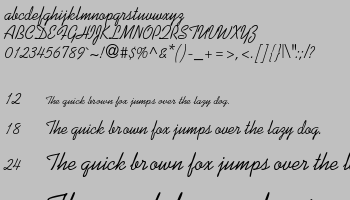 abcdefghijklmnopqrstuvwxyz
ABCDEFGHIJKLMNOPQRSTUVWXYZ
0123456789`~!@#$%^&*()-_+=>,<.[]{}|\":;/?
12 The quick brown fox jumps over the lazy dog.
18 The quick brown fox jumps over the lazy dog.
24 The quick brown fox jumps over the l